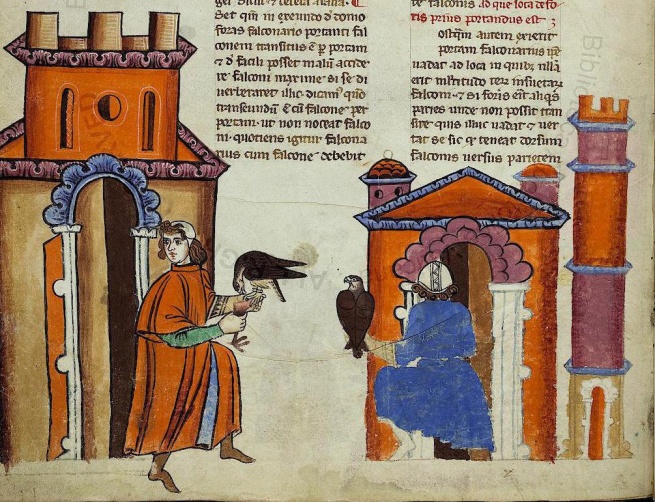 Set qñ in exeundo d domo
foras falconario portanti fal
conem transitus ē p portam
⁊ d facili posset malū accide
re falconi maxime si se di
uerberaret illic. dicam' qnō
transeundū ē cū falcone per
portam. ut non noceat falco
ni. quotiens igitur falcona
rius cum falcone debebit
te falconis. ad que loca defo
ris prius portandus est
ostquam autem exierit
portam falconarius
uadat ad loca in quibus
erit multitudo rerū insuetarū
falconi. ⁊ si foris est aliquis
paries unde non possit tran
sire quis illuc uadat ⁊ uer
tat se sic ꝙ teneat dorsum
falconis uersus parietem